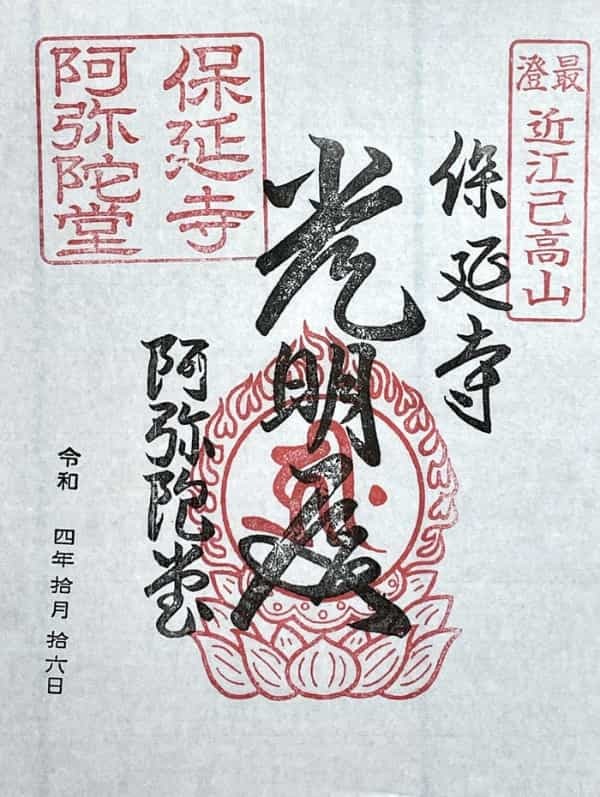 最澄
近江己高山
保延寺
光明殿
阿弥陀堂
保延寺
阿弥陀堂
令和 四年拾月拾六日